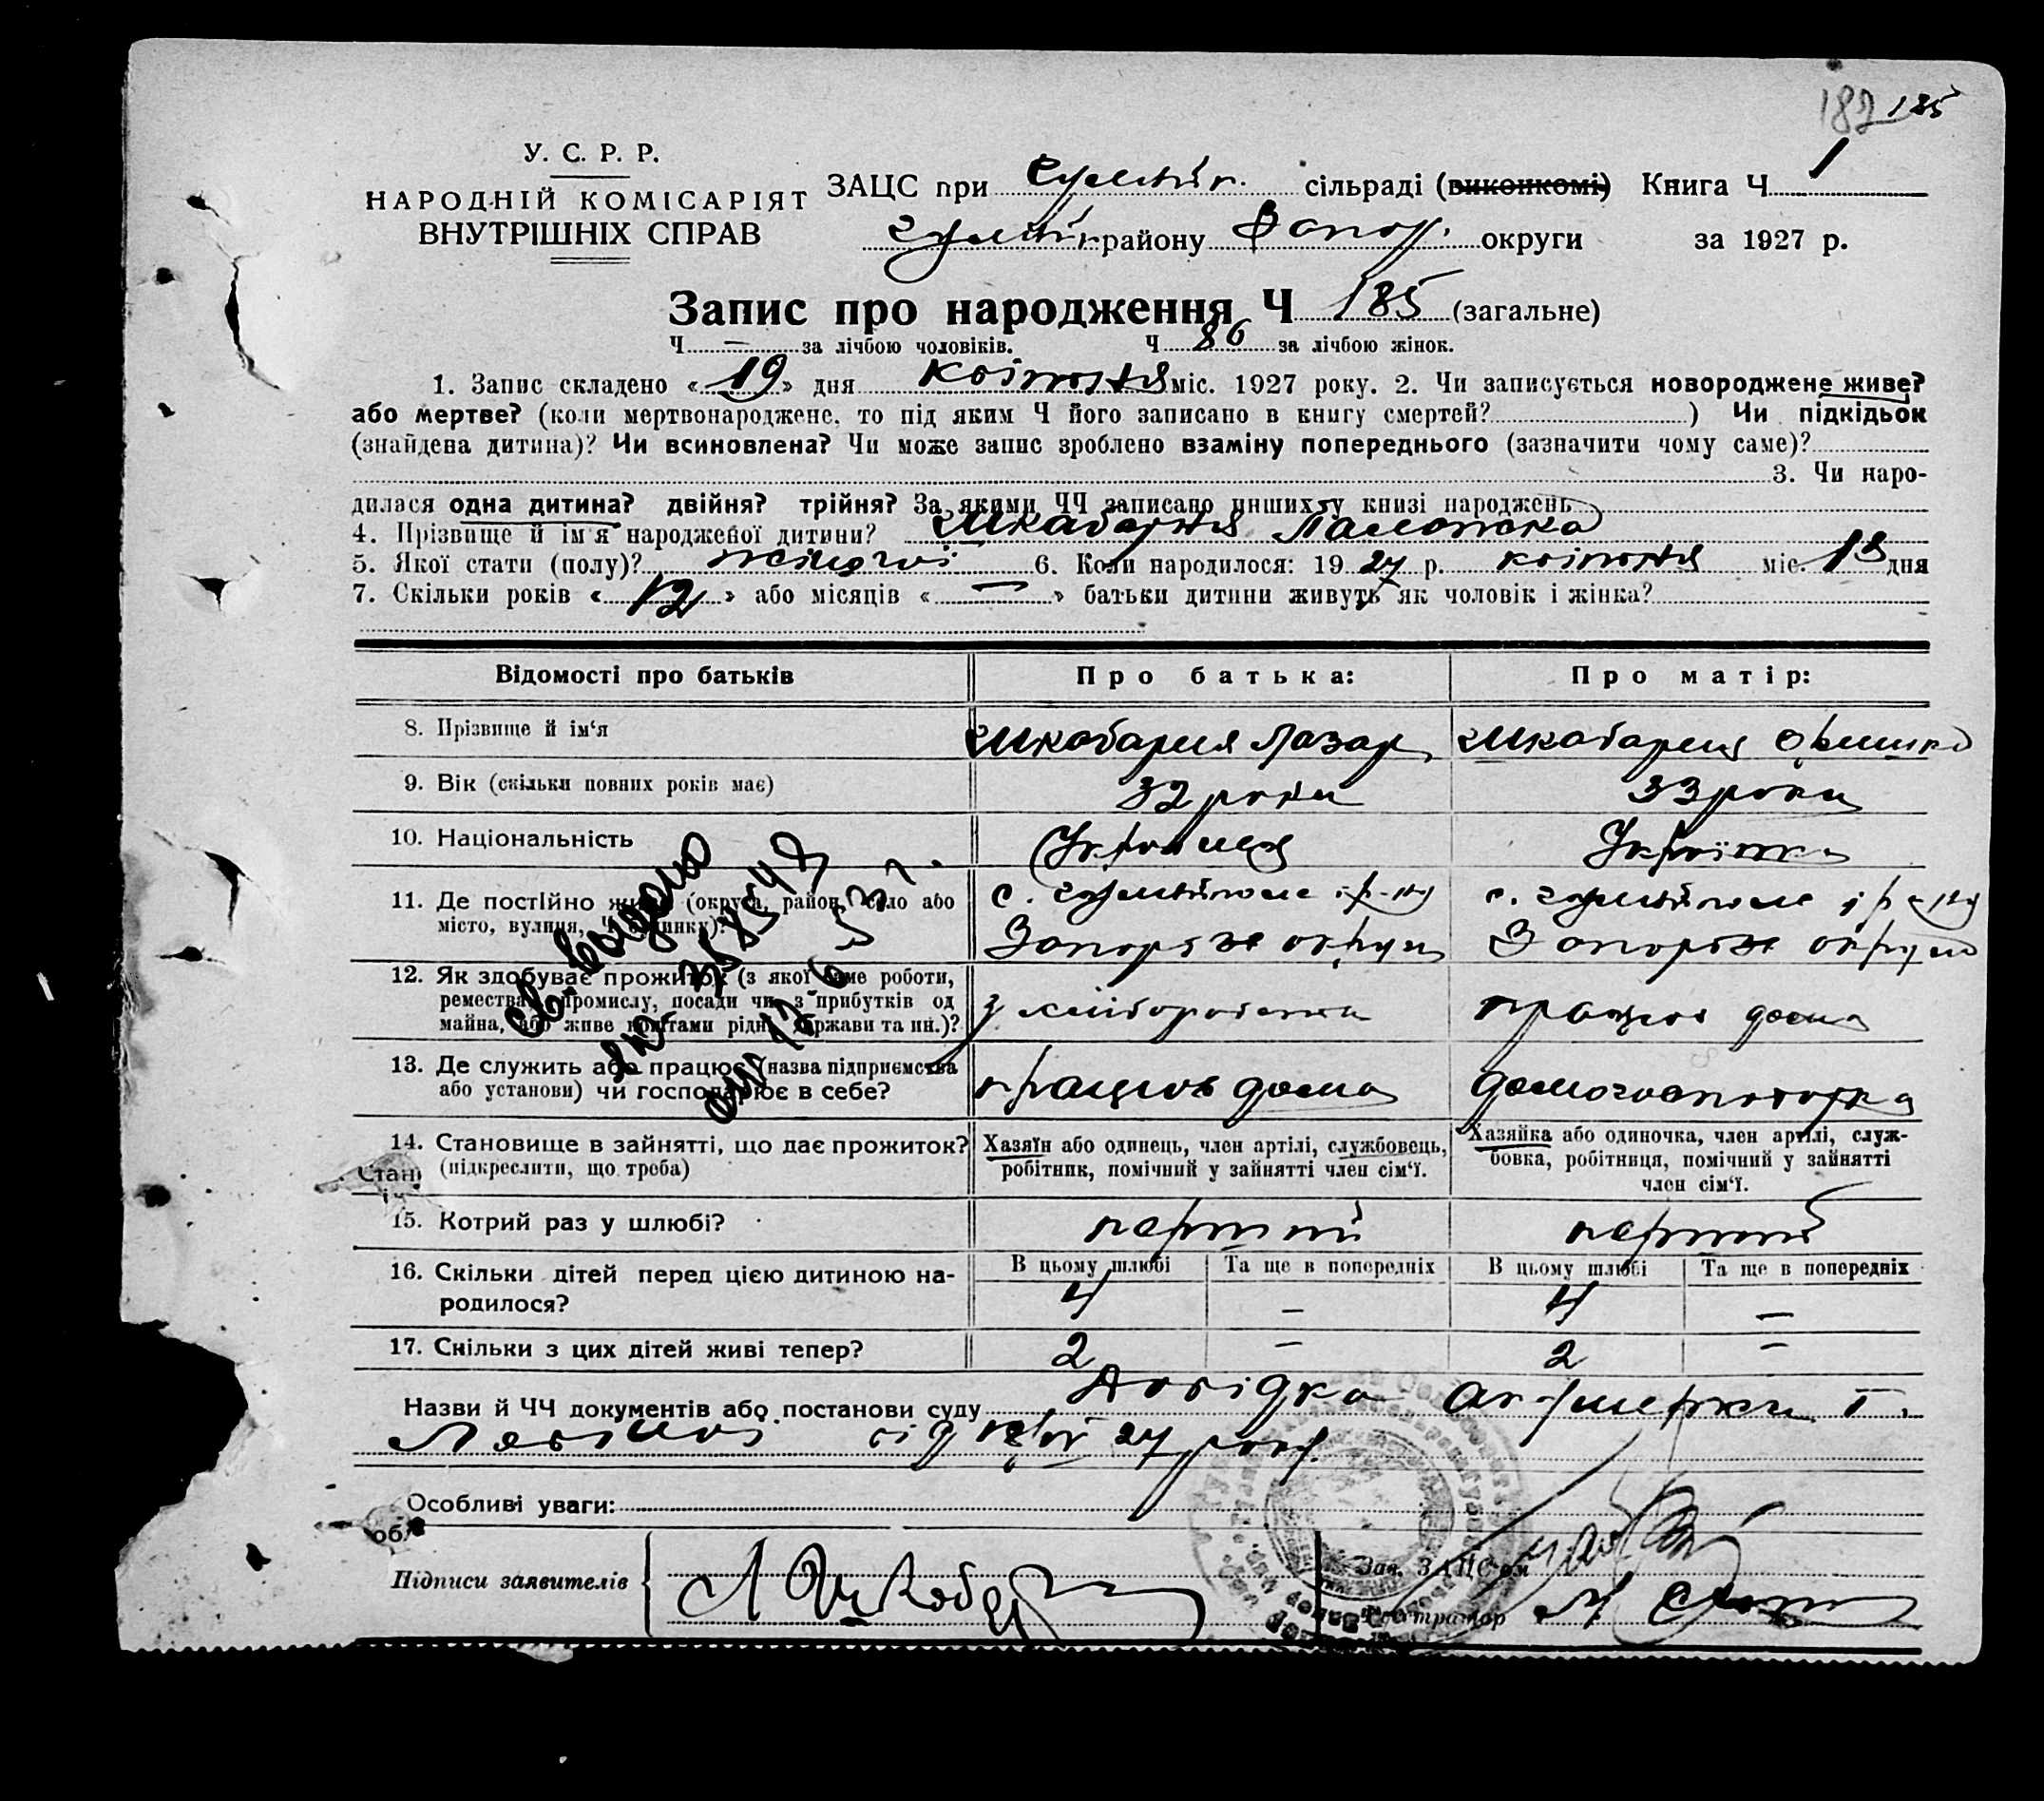 182 185
У. С. Р. Р.
НАРОДНІЙ КОМІСАРІЯТ
ВНУТРІШНІХ СПРАВ
ЗАЦС при Гуляйп. сільраді (виконкомі) Книга Ч 1
Гуляйп. району Запор. округи за 1927 р.
Запис про народження Ч 185 (загальне)
Ч — за лічбою чоловіків. Ч 86 за лічбою жінок.
1. Запис складено « 19 » дня квітня міс. 1927 року. 2. Чи записується новороджене живе?
або мертве? (коли мертвонароджене, то під яким Ч його записано в книгу смертей? ) Чи підкідьок
(знайдена дитина)? Чи всиновлена? Чи може запис зроблено взаміну попереднього (зазначити чому саме)?
3. Чи наро-
дилася одна дитина? двійня? трійня? За якими ЧЧ записано инших у книзі народжень
4. Прізвище й ім'я народженої дитини? Шкабарня
5. Якої стати (полу)? жіночої 6. Коли народилося: 19 27 р. квітня міс. 13 дня
7. Скільки років « 12 » або місяців « — » батьки дитини живуть як чоловік і жінка?
Відомості про батьків Про батька: Про матір:
8. Прізвище й ім'я Шкабарня Лазар Шкабарня
9. Вік (скільки повних років має) 32 роки 33 роки
10. Національність Українець Українка
11. Де постійно живе (округа, район, село або
місто, вулиця, Ч будинку)?
с. Гуляйполе і р-ну
Запоріж округи
с. Гуляйполе і р-ну
Запоріж округи
12. Як здобуває прожиток (з якої саме роботи,
ремества, промислу, посади чи з прибутків од
майна, або живе коштами рідні, держави та ин.)?
з хліборобства
працює дома
13. Де служить або працює (назва підприємства
або установи) чи господарює в себе?
працює дома
домогосподарка
14. Становище в зайнятті, що дає прожиток?
(підкреслити, що треба)
Хазяїн або одинець, член артілі, службовець,
робітник, помічний у зайнятті член сім'ї.
Хазяйка або одиночка, член артілі, служ-
бовка, робітниця, помічний у зайнятті
член сім'ї.
Стані
15. Котрий раз у шлюбі? перший перший
16. Скільки дітей перед цією дитиною на-
родилося?
В цьому шлюбі Та ще в попередніх В цьому шлюбі Та ще в попередніх
4 — 4 —
17. Скільки з цих дітей живі тепер? 2 — 2 —
св. видано
от 12 6 537.
Назви й ЧЧ документів або постанови суду Довідка акушерки т.
від 27 року.
Особливі уваги:
об
Підписи заявителів Л Шкабар
Зав. ЗАЦС'ом
Реєстратор